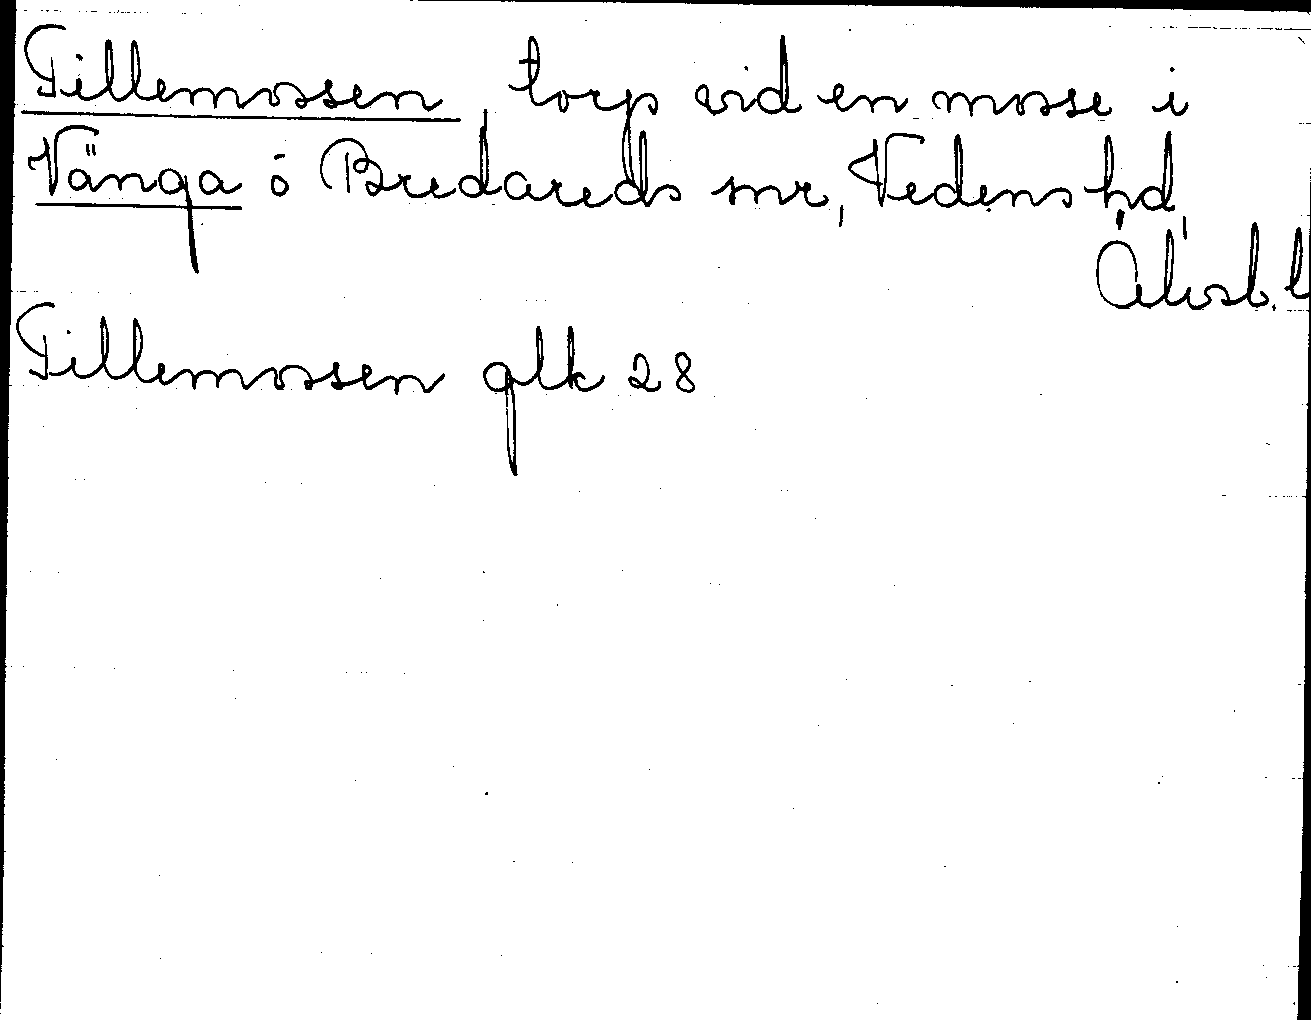 Tillemossen, torp vid en mosse i
Vänga ó Bredareds snr, Vedens hd,
Älvsb. l
Tillemossen glk 28